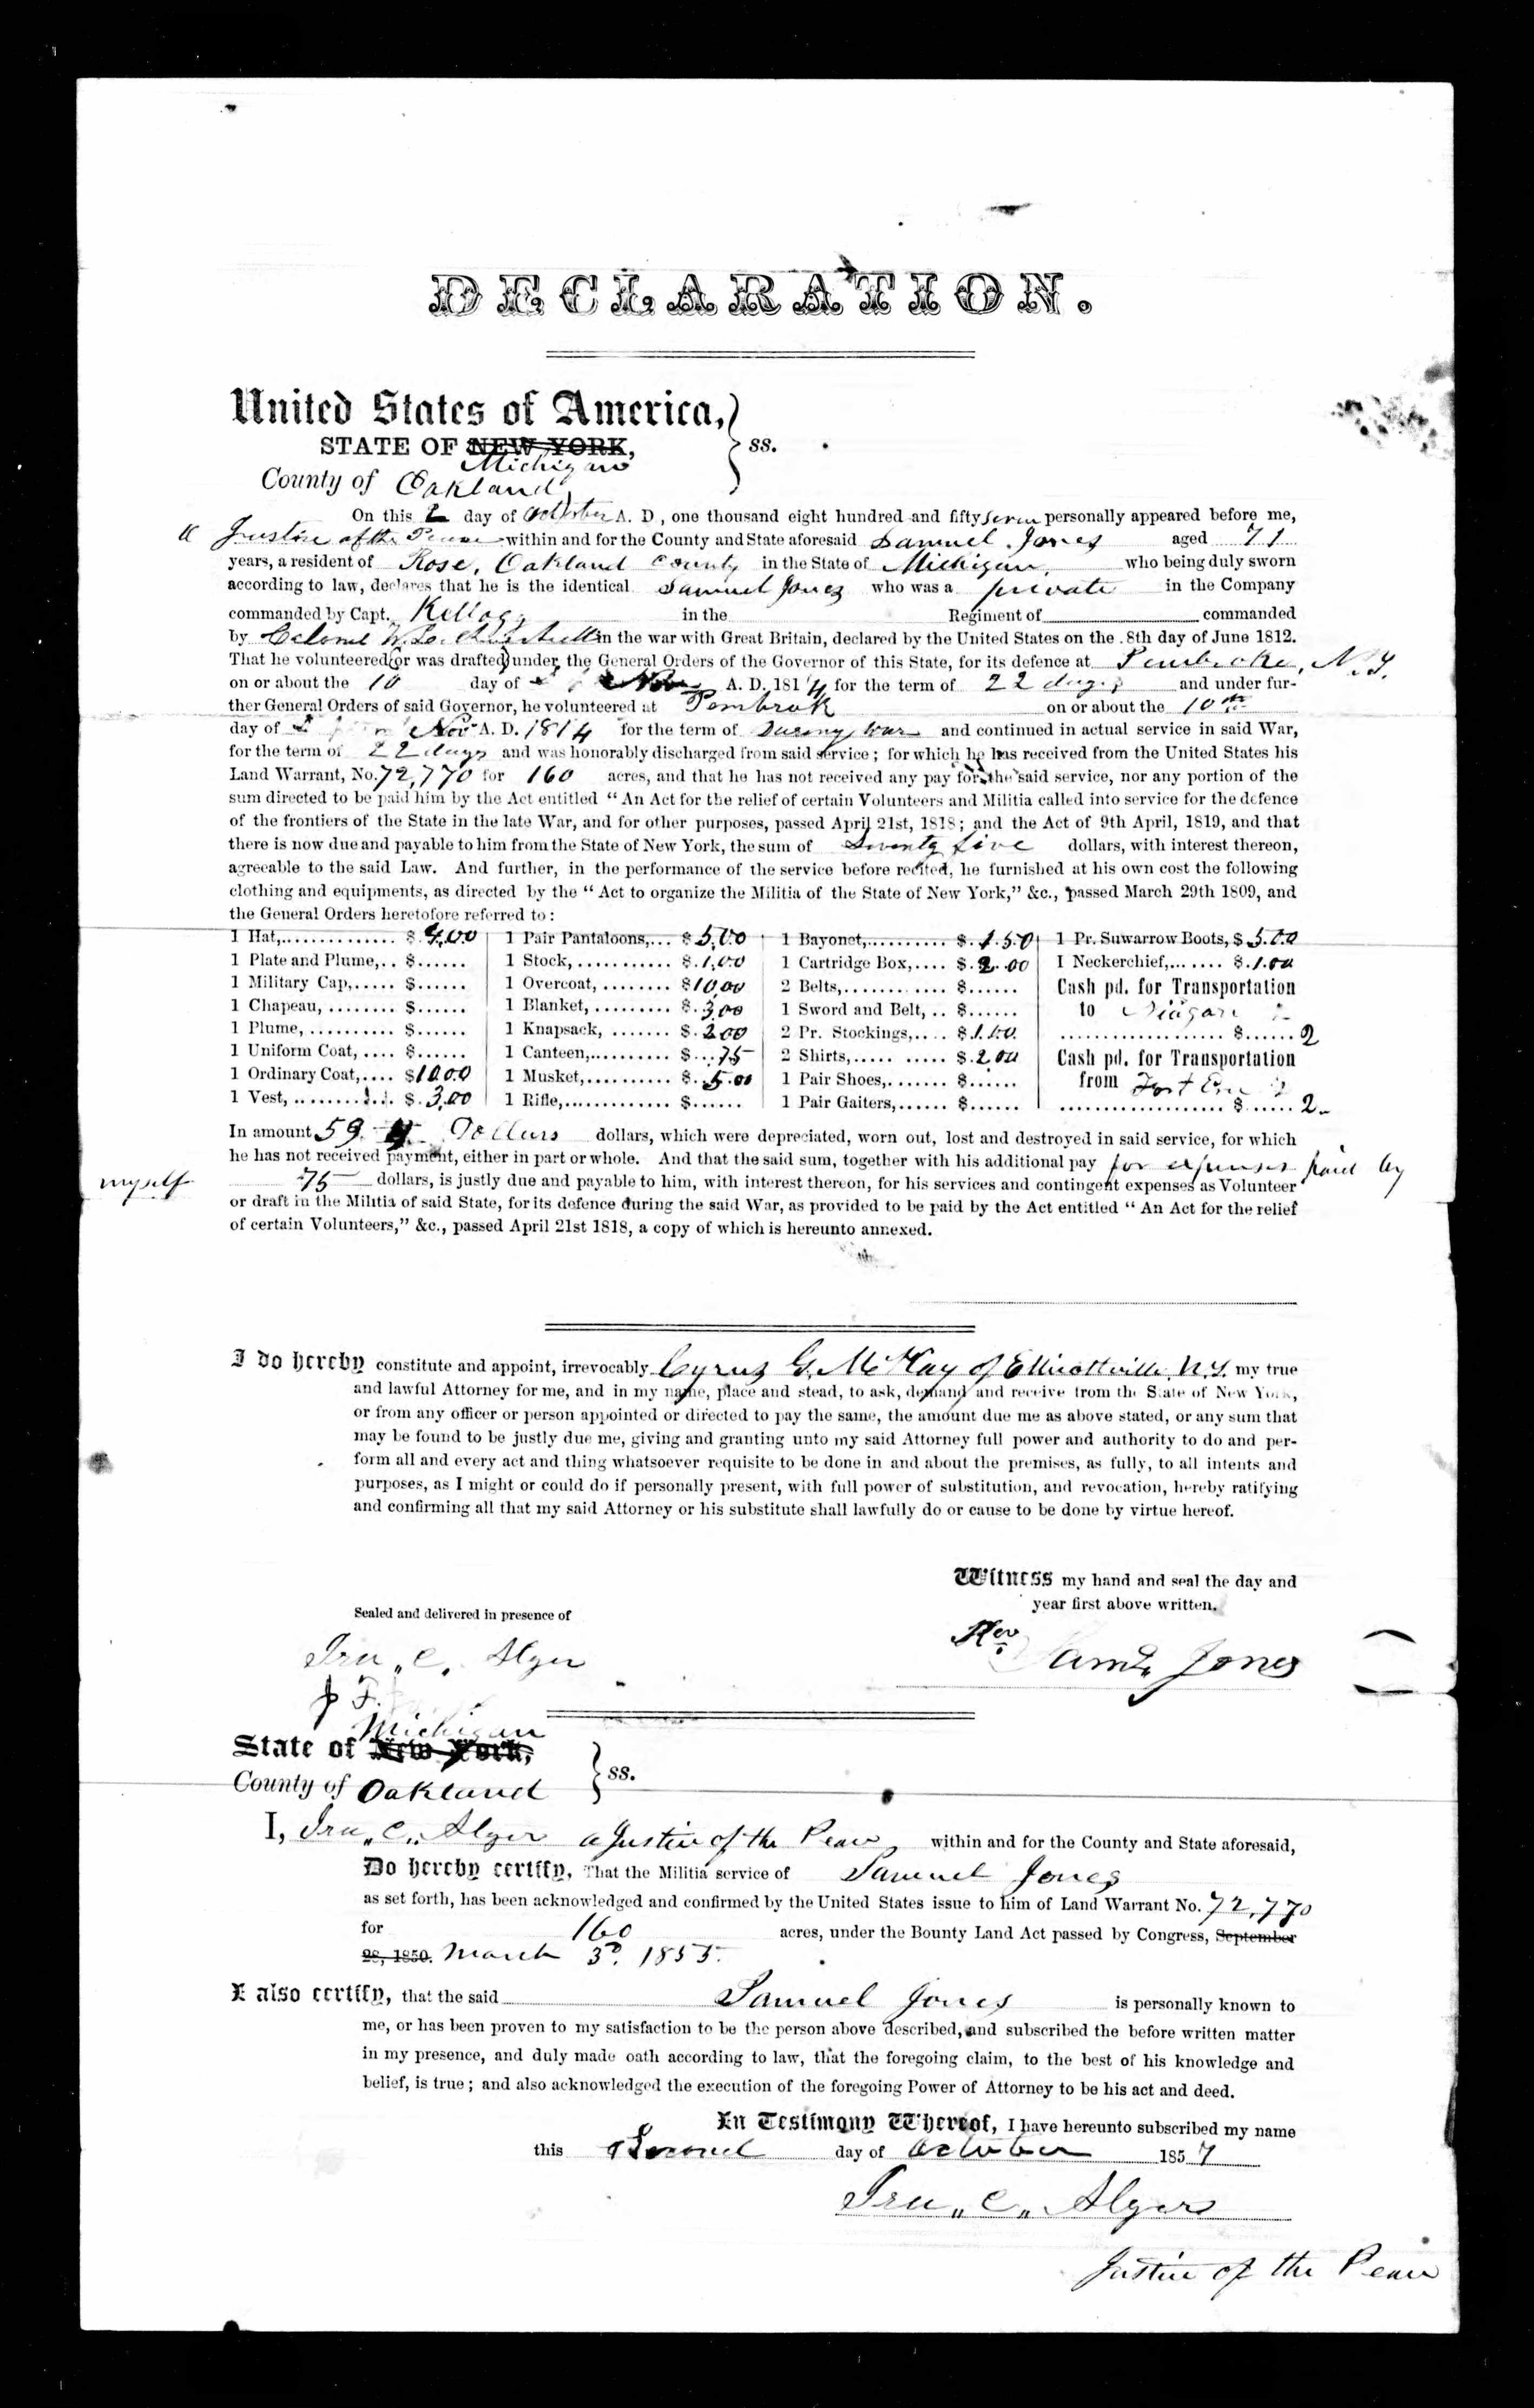 DECLARATION.
United States of America,
STATE OF NEW YORK, } ss.
Michigan
County of Oakland
On this 2 day of October A. D., one thousand eight hundred and fifty seven personally appeared before me,
a Justice of the Peace within and for the County and State aforesaid Samuel Jones aged 71
years, a resident of Rose, Oakland County in the State of Michigan, who being duly sworn
according to law, declares that he is the identical Samuel Jones who was a private in the Company
commanded by Capt. Kellogg in the Regiment of commanded
by Colonel in the war with Great Britain, declared by the United States on the 8th day of June 1812.
That he volunteered (or was drafted) under the General Orders of the Governor of this State, for its defence at Pembroke, N.Y.
on or about the 10 day of Nov A. D. 1814 for the term of 22 days and under fur-
ther General Orders of said Governor, he volunteered at Pembrok on or about the 10th
day of Nov A. D. 1814 for the term of During War and continued in actual service in said War,
for the term of 22 days and was honorably discharged from said service; for which he has received from the United States his
Land Warrant, No. 72,770 for 160 acres, and that he has not received any pay for the said service, nor any portion of the
sum directed to be paid him by the Act entitled "An Act for the relief of certain Volunteers and Militia called into service for the defence
of the frontiers of the State in the late War, and for other purposes, passed April 21st, 1818; and the Act of 9th April, 1819, and that
there is now due and payable to him from the State of New York, the sum of Seventy five dollars, with interest thereon,
agreeable to the said Law. And further, in the performance of the service before recited, he furnished at his own cost the following
clothing and equipments, as directed by the "Act to organize the Militia of the State of New York," &c., passed March 29th 1809, and
the General Orders heretofore referred to:
1 Hat,.............. $ 4,00 | 1 Pair Pantaloons,... $ 5,00 | 1 Bayonet,.......... $ 1.50 | 1 Pr. Suwarrow Boots, $ 5.00
1 Plate and Plume,.. $...... | 1 Stock,........... $ 1,00 | 1 Cartridge Box,.... $ 2.00 | 1 Neckerchief,....... $ 1.00
1 Military Cap,..... $...... | 1 Overcoat, ........ $10,00 | 2 Belts,............ $...... | Cash pd. for Transportation
1 Chapeau, ........ $...... | 1 Blanket, ......... $ 3,00 | 1 Sword and Belt, .. $...... | to Niagara
1 Plume, .......... $...... | 1 Knapsack, ....... $ 2.00 | 2 Pr. Stockings,.... $ 1.00. | ................... $...... 2
1 Uniform Coat, .... $...... | 1 Canteen,.......... $ ..75 | 2 Shirts,..... ..... $ 2,00 | Cash pd. for Transportation
1 Ordinary Coat,.... $10.00 | 1 Musket,........... $ .5.00 | 1 Pair Shoes,....... $...... | from Fort Erie
1 Vest, ............ $ 3,00 | 1 Rifle,............. $...... | 1 Pair Gaiters,...... $...... | ................... $...... 2
In amount 59 Dollars dollars, which were depreciated, worn out, lost and destroyed in said service, for which
he has not received payment, either in part or whole. And that the said sum, together with his additional pay for expenses paid by
myself 75 dollars, is justly due and payable to him, with interest thereon, for his services and contingent expenses as Volunteer
or draft in the Militia of said State, for its defence during the said War, as provided to be paid by the Act entitled "An Act for the relief
of certain Volunteers," &c., passed April 21st 1818, a copy of which is hereunto annexed.
I do hereby constitute and appoint, irrevocably Cyrus G. McKay of Ellicottville N.Y. my true
and lawful Attorney for me, and in my name, place and stead, to ask, demand and receive from the State of New York,
or from any officer or person appointed or directed to pay the same, the amount due me as above stated, or any sum that
may be found to be justly due me, giving and granting unto my said Attorney full power and authority to do and per-
form all and every act and thing whatsoever requisite to be done in and about the premises, as fully, to all intents and
purposes, as I might or could do if personally present, with full power of substitution, and revocation, hereby ratifying
and confirming all that my said Attorney or his substitute shall lawfully do or cause to be done by virtue hereof.
Witness my hand and seal the day and
year first above written.
Sealed and delivered in presence of
Rev Saml. Jones
Ira „ C „ Alger
Michigan
State of New York, } ss.
County of Oakland
I, Ira „ C „ Alger a Justice of the Peace, within and for the County and State aforesaid,
Do hereby certify, That the Militia service of Samuel Jones
as set forth, has been acknowledged and confirmed by the United States issue to him of Land Warrant No. 72,770
for 160 acres, under the Bounty Land Act passed by Congress, September
28, 1850. March 3d. 1855.
I also certify, that the said Samuel Jones is personally known to
me, or has been proven to my satisfaction to be the person above described, and subscribed the before written matter
in my presence, and duly made oath according to law, that the foregoing claim, to the best of his knowledge and
belief, is true; and also acknowledged the execution of the foregoing Power of Attorney to be his act and deed.
In Testimony Whereof, I have hereunto subscribed my name
this Second day of October 1857
Ira „ C „ Alger
Justice of the Peace